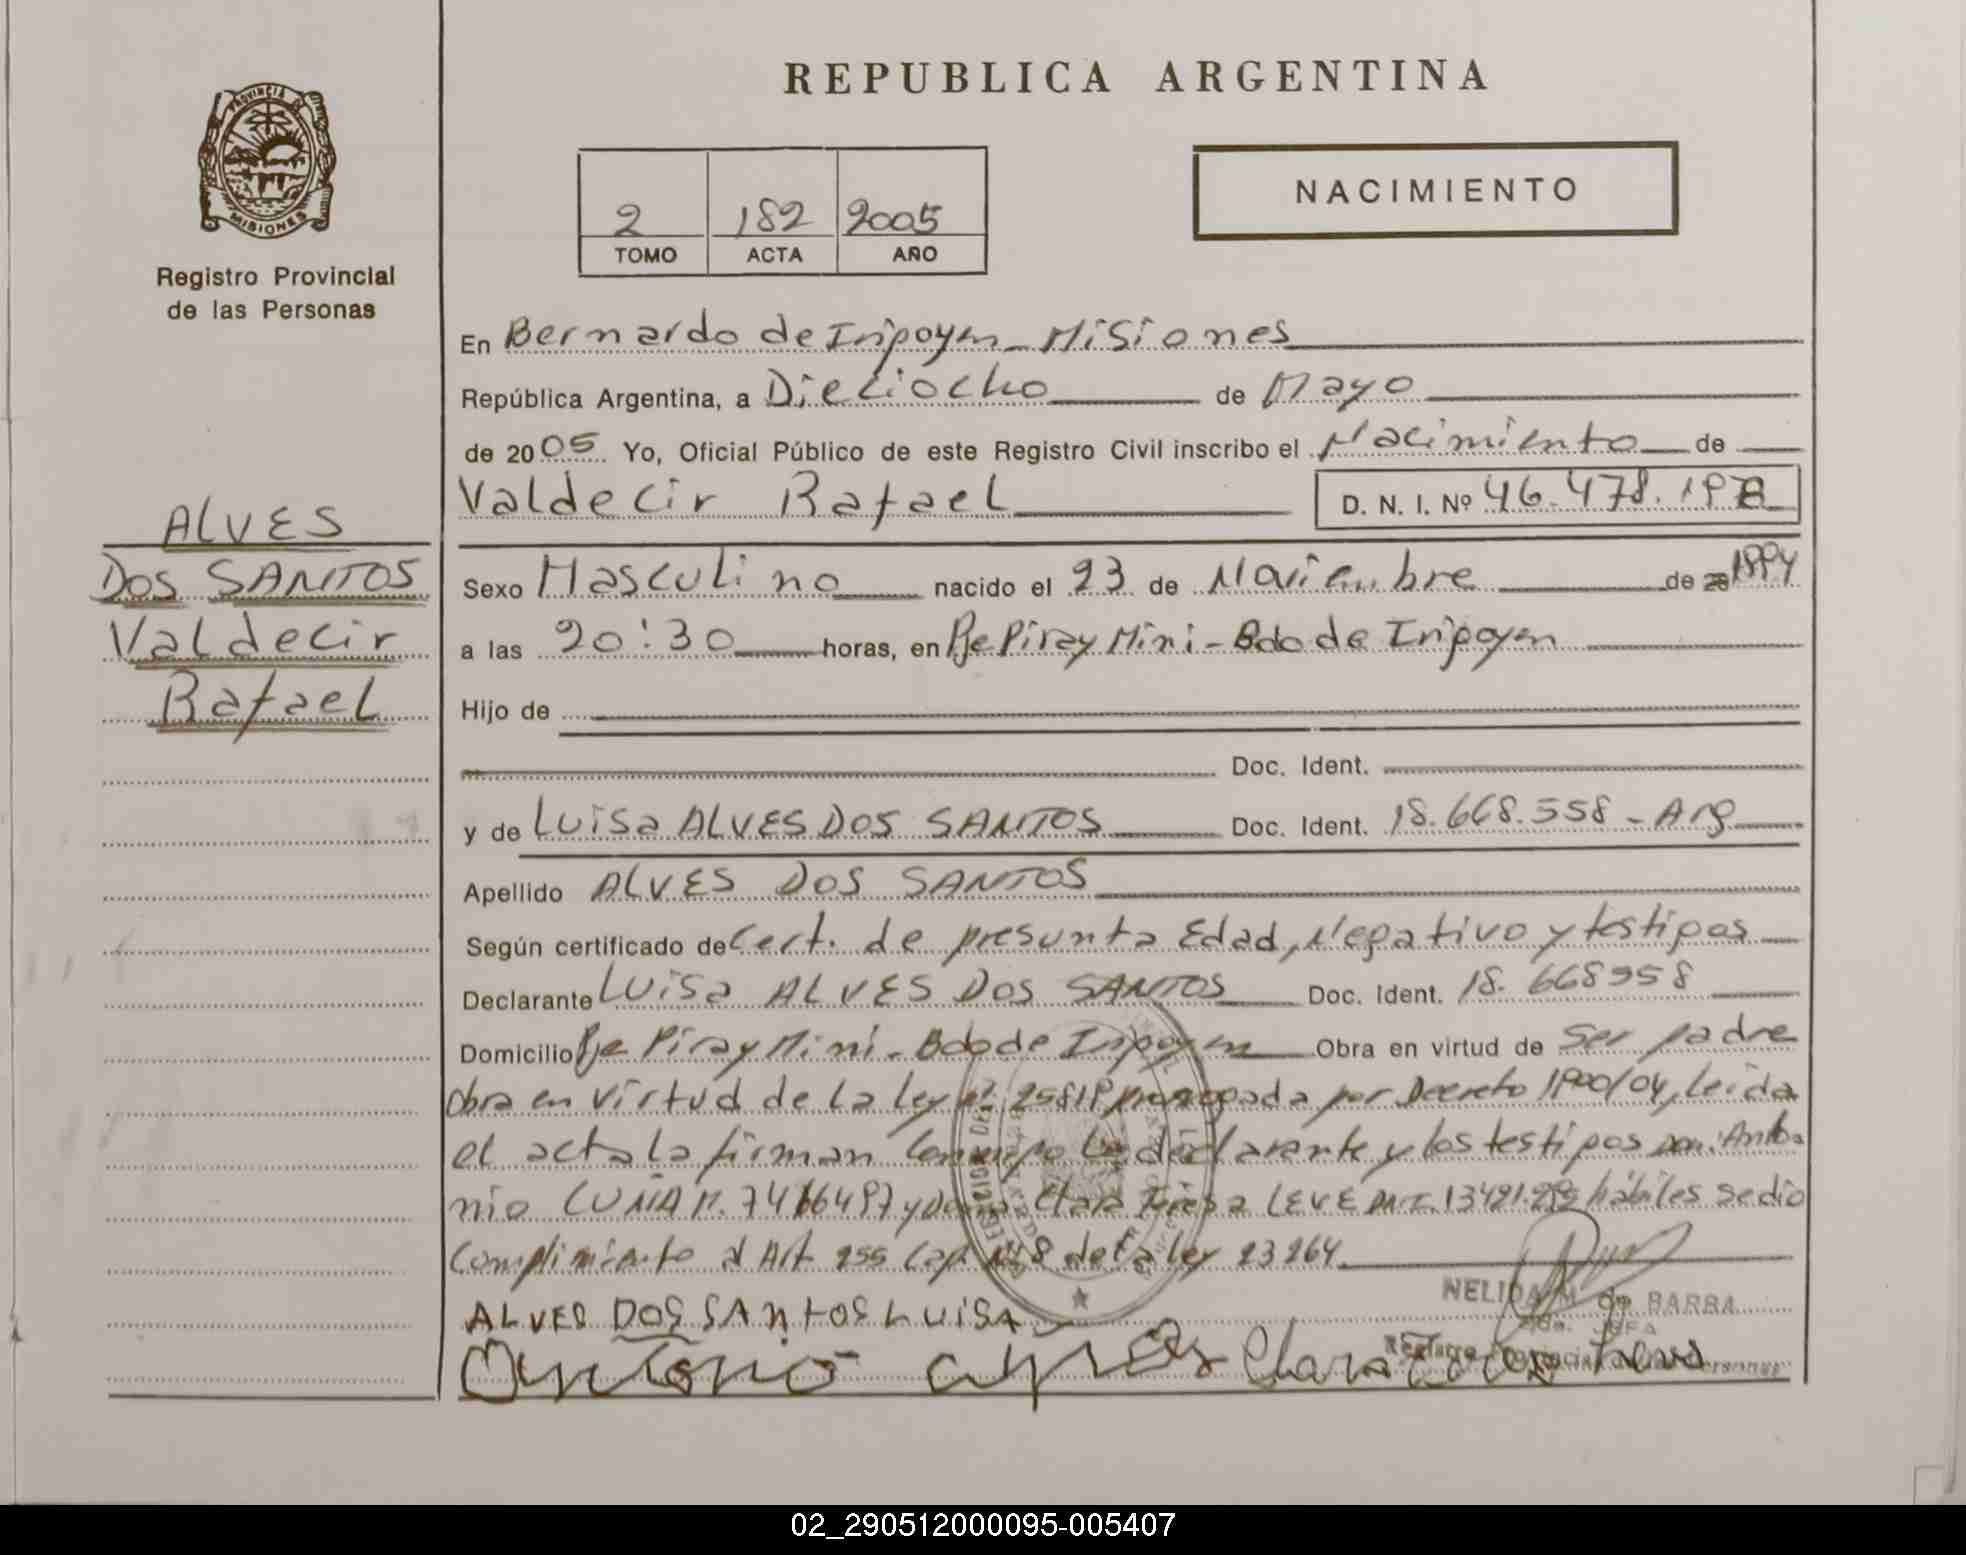 REPUBLICA ARGENTINA
PROVINCIA DE
MISIONES
Registro Provincial
de las Personas
2 182 2005
TOMO ACTA AÑO
NACIMIENTO
ALVES
DOS SANTOS
Valdecir
Rafael
En Bernardo de Irigoyen - Misiones
República Argentina, a Dieciocho de Mayo
de 2005 Yo, Oficial Público de este Registro Civil inscribo el Nacimiento de
Valdecir Rafael D. N. I. Nº 46.478.198
Sexo Masculino nacido el 23 de Noviembre de 1994
a las 20:30 horas, en Pje Piray Mini - Bdo de Irigoyen
Hijo de
Doc. Ident.
y de Luisa ALVES DOS SANTOS Doc. Ident. 18.668.558 - Arg
Apellido ALVES DOS SANTOS
Según certificado de Cert. de presunta Edad, Negativo y testigos
Declarante Luisa ALVES DOS SANTOS Doc. Ident. 18.668558
Domicilio Pje Piray Mini - Bdo de Irigoyen Obra en virtud de Ser padre
obra en virtud de la ley nº 25819 prorrogada por Decreto 1900/04, leida
el acta la firman conmigo la declarante y los testigos don: Anto
nio CUNA M. 7466497 y Doña Clara Teresa LEVE DNI. 13421. hábiles se dio
Cumplimiento al Art 255 Cap. Nº 8 de la ley 23264
ALVES DOS SANTOS LUISA
Antonio Clara
NELIDA M. de BARBA
JEFA
Registro Provincial de las Personas
02_290512000095-005407